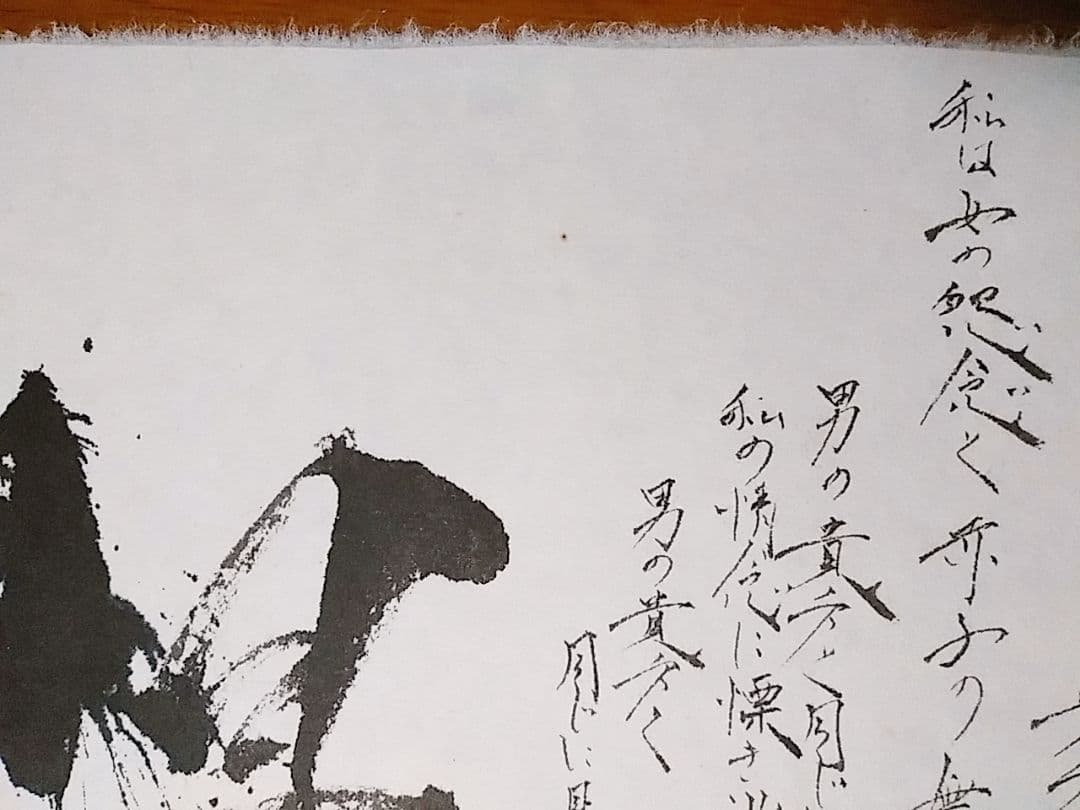 私は女の怨念と赤子の無
男の貴方と同じ
私の情念に慄き
男の貴方と
同じに